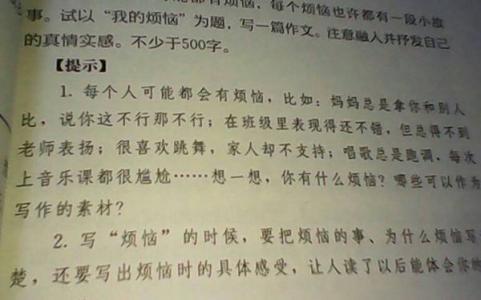 都有烦恼,每个烦恼也许都有一段小故
事。试以“我的烦恼”为题,写一篇作文。注意融入并抒发自己
的真情实感。不少于500字。
【提示】
1. 每个人可能都会有烦恼,比如:妈妈总是拿你和别人
比,说你这不行那不行;在班级里表现得还不错,但总得不到
老师表扬;很喜欢跳舞,家人却不支持;唱歌总是跑调,每次
上音乐课都很尴尬……想一想,你有什么烦恼?哪些可以作为
写作的素材?
2. 写“烦恼”的时候,要把烦恼的事、为什么烦恼写
楚,还要写出烦恼时的具体感受,让人读了以后能体会你的